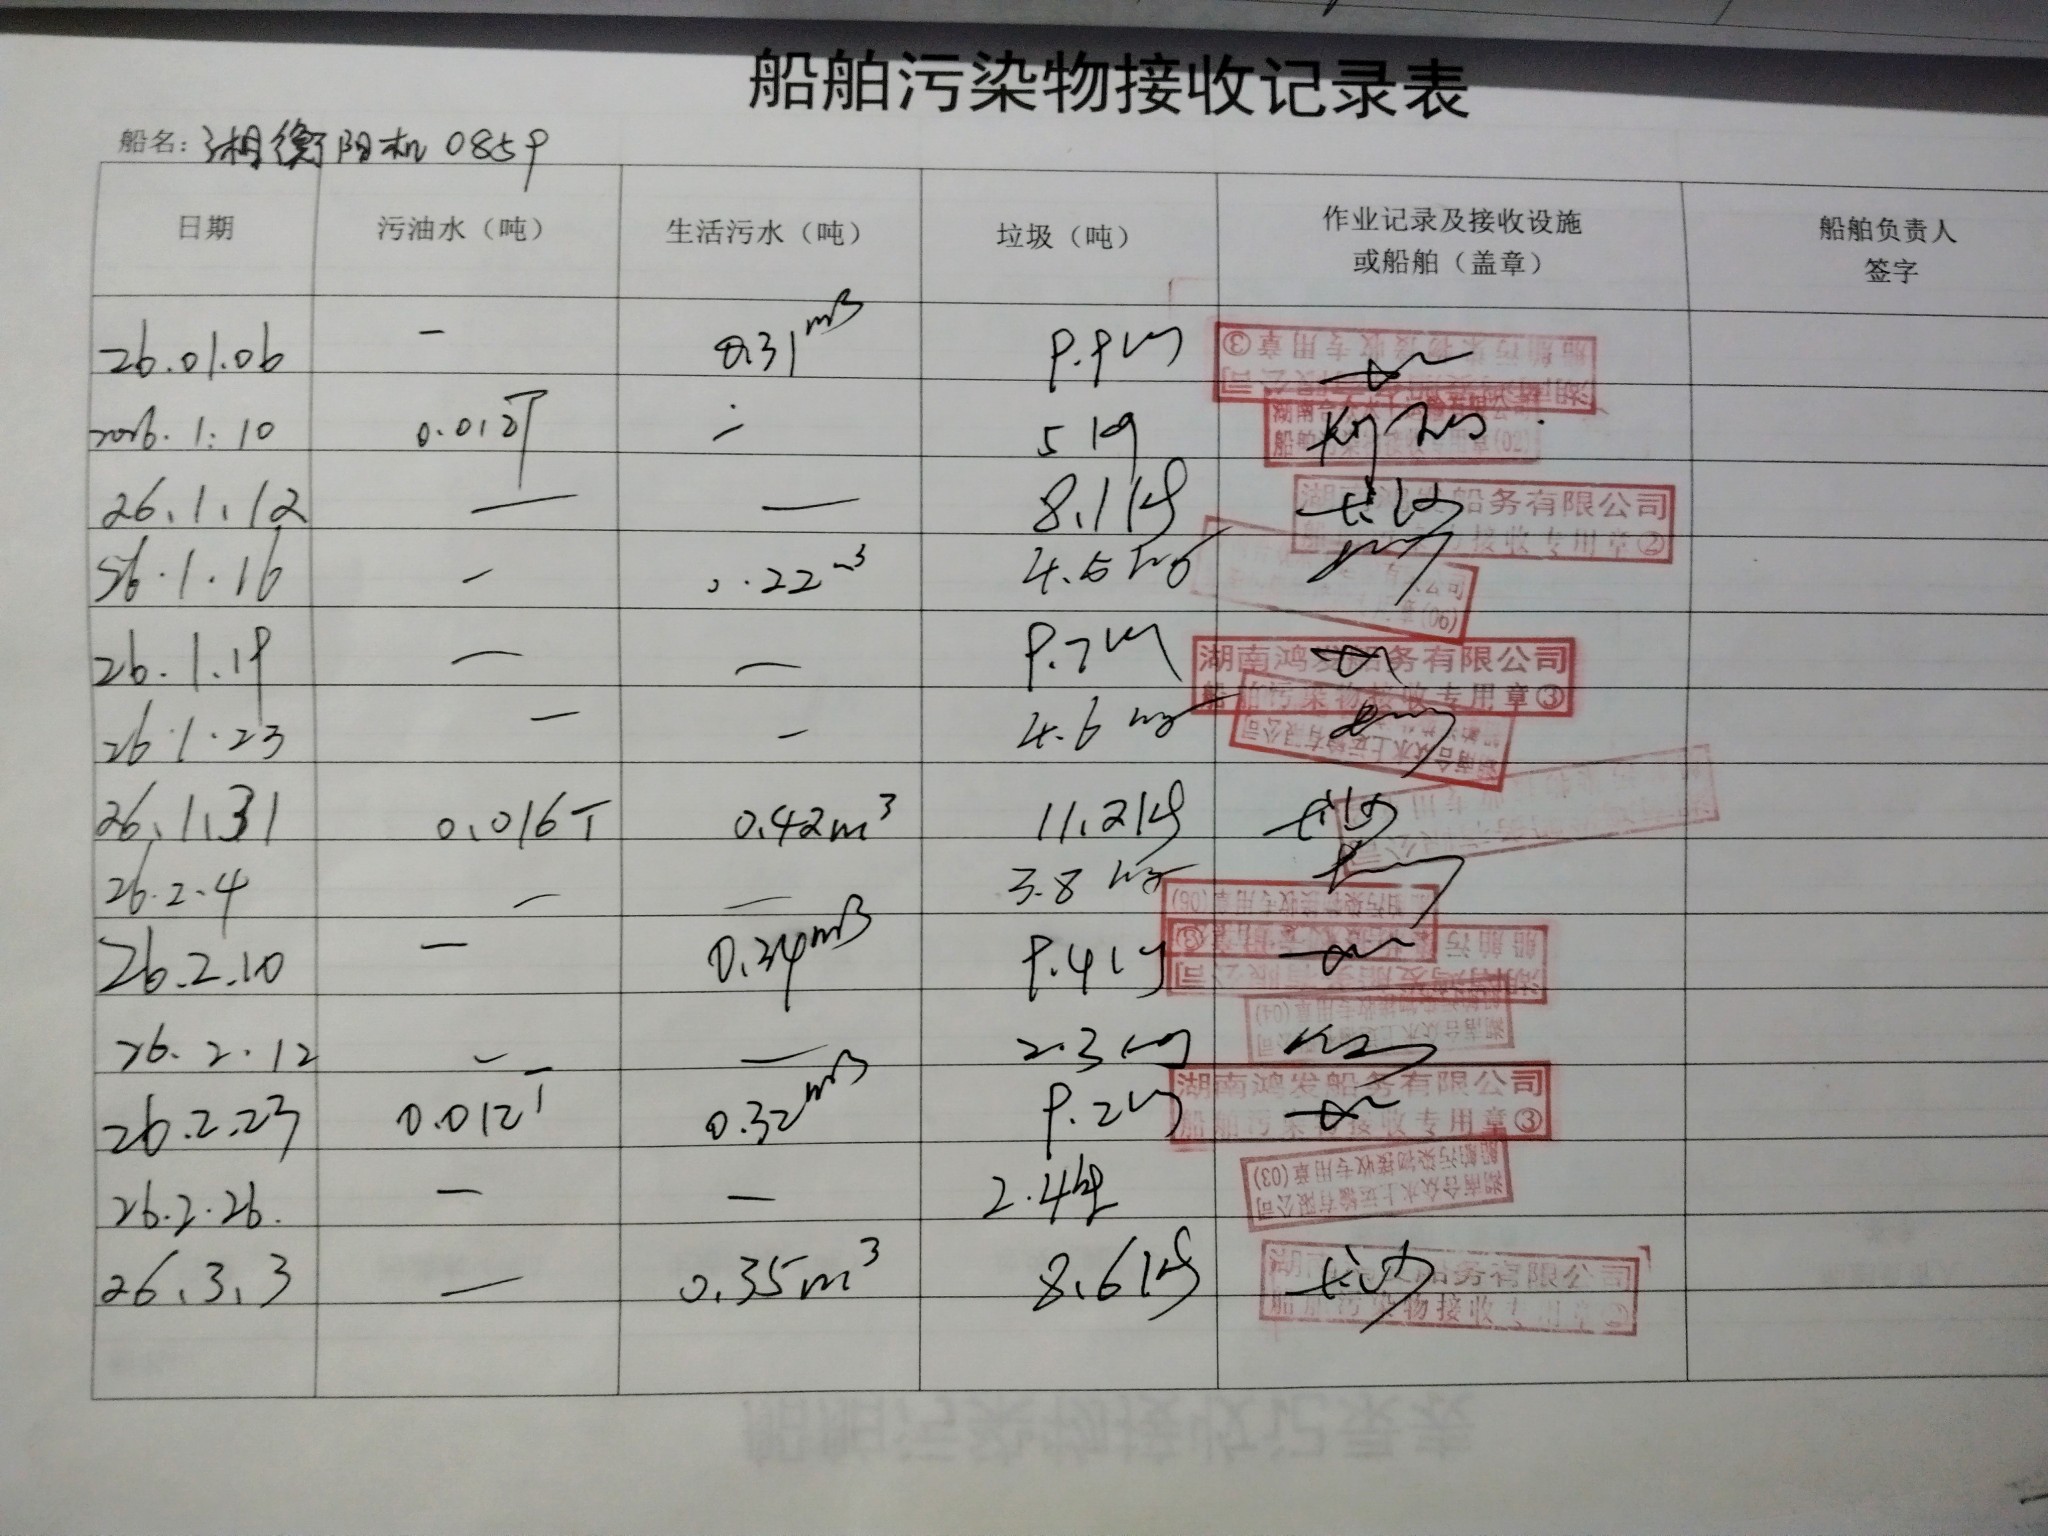 船舶污染物接收记录表
船名: 湘衡阳机0859
日期 污油水（吨） 生活污水（吨） 垃圾（吨） 作业记录及接收设施或船舶（盖章） 船舶负责人签字
26.01.06 — 0.31m3 9.9kg 船舶污染物接收专用章③
2026.1.10 0.012T — 5kg
26.1.12 — — 8.1kg 长沙 湖南鸿发船务有限公司 船舶污染物接收专用章②
26.1.16 — 0.22m3 4.5kg
26.1.19 — — 9.7kg 湖南鸿发船务有限公司 船舶污染物接收专用章③
26.1.23 — — 4.6kg 湖南合众水上运输有限公司
26.1.31 0.016T 0.42m3 11.2kg 长沙
26.2.4 — — 3.8kg 船舶污染物接收专用章(06)
26.2.10 — 0.34m3 9.4kg
26.2.12 — — 2.3kg 湖南合众水上运输有限公司 船舶污染物接收专用章(04)
26.2.23 0.012T 0.32m3 9.2kg 湖南鸿发船务有限公司 船舶污染物接收专用章③
26.2.26. — — 2.4kg 湖南合众水上运输有限公司 船舶污染物接收专用章(03)
26.3.3 — 0.35m3 8.6kg 长沙 湖南鸿发船务有限公司 船舶污染物接收专用章②